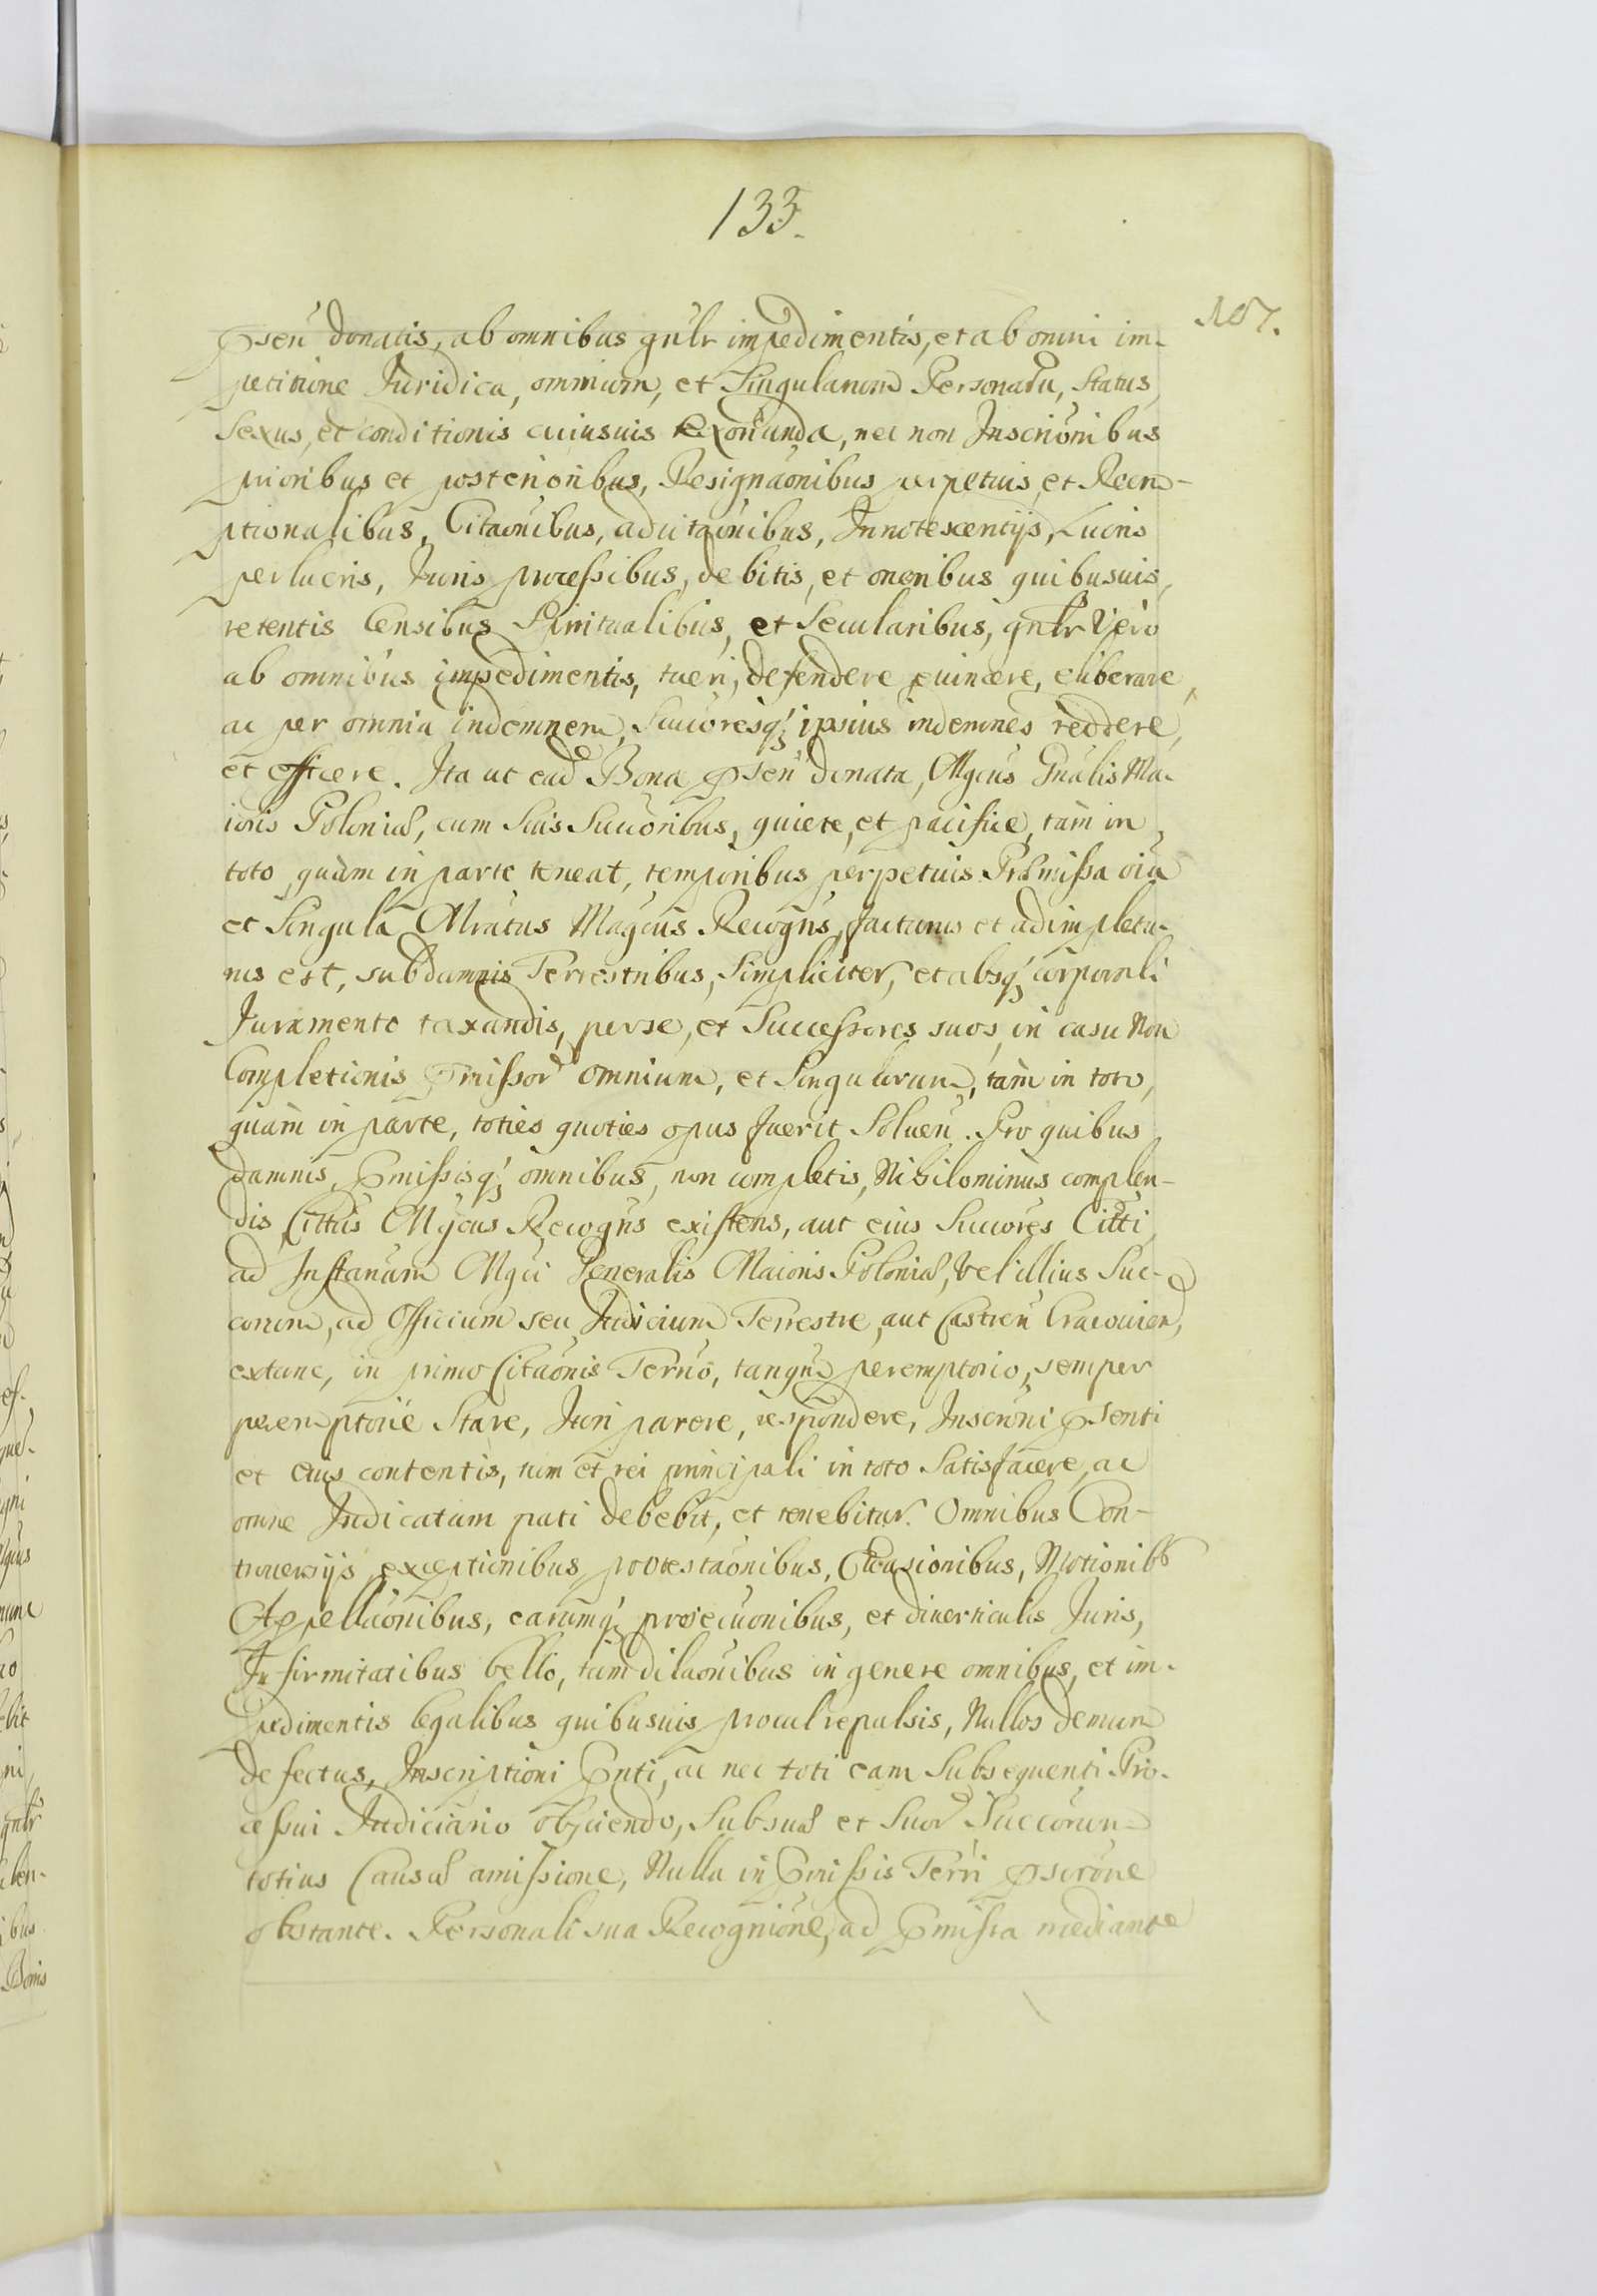 133.
107.
psen̄ donatis, ab omnibus gn̄lr impedimentis, et ab omni im-
petitione Juridica, omnium, et Singularum Personaru, Status,
Sexus, et conditionis cuiusuis, nec non Inscrionibus
prioribus et posterioribus, Resignaōnibus perpetuis, et Reem-
ptionalibus, Citaōnibus, adcitaōnibus, Innotescentijs, Lucris
perlucris, Juris processibus, debitis, et oneribus quibusuis,
retentis Censibus Spiritualibus, et Secularibus, gn̄lr Vero
ab omnibus impedimentis, tueri, defendere euincere, eliberare,
ac per omnia indemnem, Succoresq; ipsius indemnes reddere,
et efficere. Ita ut ead Bona psen̄ donata, Mgcus Gn̄alis Ma-
ioris Poloniæ, cum Suis Succoribus, quiete, et pacifice, tam in
toto, quam in parte teneat, temporibus perpetuis. Præmissa oia
et Singula Mratus Magcus Recogns, facturus et adimpletu-
rus est, sub damnis Terrestribus, Simpliciter, et absq; corporali
Juramento taxandis, per se, et Successores suos, in casu Non
Completionis pmissor omnium, et Singulorum, tam in toto,
quam in parte, toties quoties opus fuerit Soluen̄. Pro quibus
damnis, pmissisq; omnibus, non completis, Nihilominus complen-
dis, Cittus Mgcus Recogns existens, aut eius Succores Citti
ad Instanam Mgci Generalis Maioris Poloniæ, vel illius Suc-
corum, ad Officium seu Judicium Terrestre, aut Castren̄ Cracouien,
extunc, in primo Citaōnis Termō, tanqm peremptorio, semper
peremptorie Stare, Juri parere, respondere, Inscrioni psenti
et eius contentis, tum et rei principali in toto Satisfacere, ac
omne Judicatum pati debebit, et tenebitur. Omnibus Con-
trouersijs, exceptionibus, protestaōnibus, Euasionibus, Motionibb
Appellaōnibus, earumq; prosecuonibus, et diuerticulis Juris,
Infirmitatibus bello, tum dilaōnibus in genere omnibus, et im-
pedimentis legalibus quibusuis procul repulsis, Nullos demum
defectus, Inscriptioni pnti, ac nec toti eam Subsequenti Pro-
cessui Judiciario obijciendo, Sub suæ et Suor Succorum
totius Causæ amissione, Nulla in pmissis Terrī pscrōne
obstante. Personali sua Recognione, ad pmissa mediante